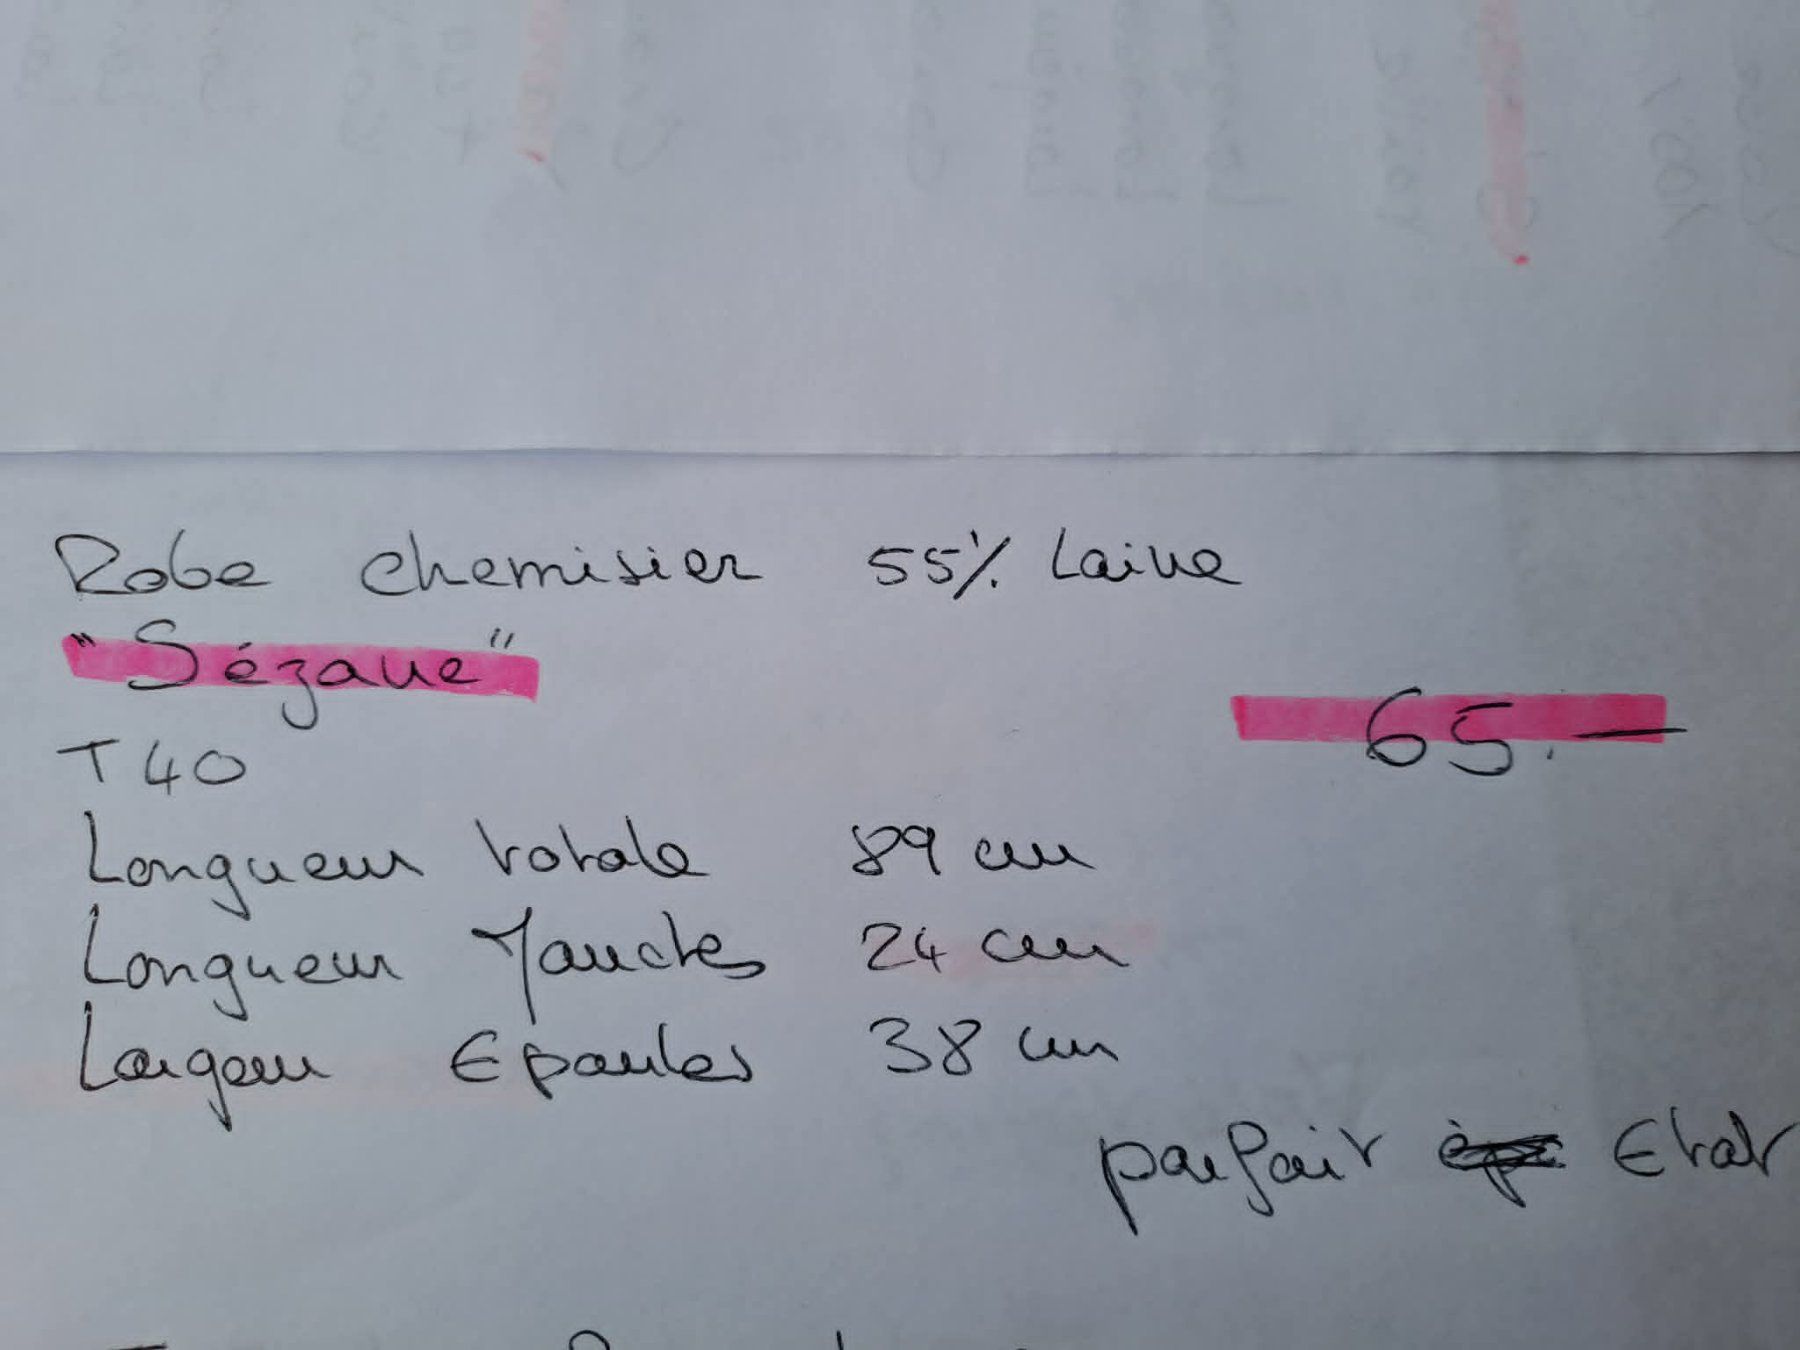 Robe chemisier 55% Laine
"Sézane"
65.—
T 40
Longueur totale 89 cm
Longueur Manches 24 cm
Largeur Epaules 38 cm
parfait Etat